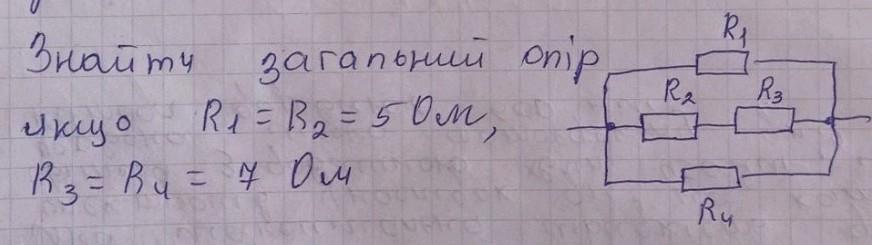 Знайти загальний опір
якщо R1 = R2 = 5 Ом,
R3 = R4 = 7 Ом
R1
R2 R3
R4